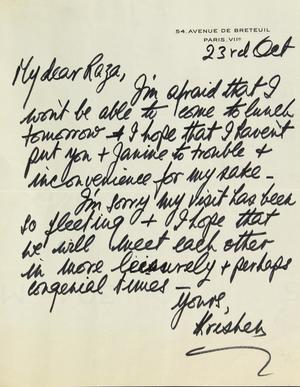 54. AVENUE DE BRETEUIL
PARIS. VIIe
23rd Oct
My dear Raza,
I'm afraid that I
won't be able to come to lunch
tomorrow + I hope that I haven't
put you + Janine to trouble +
inconvenience for my sake -
I'm sorry my visit has been
so fleeting + I hope that
we will meet each other
in more leisurely + perhaps
congenial times -
Yours,
Krishen